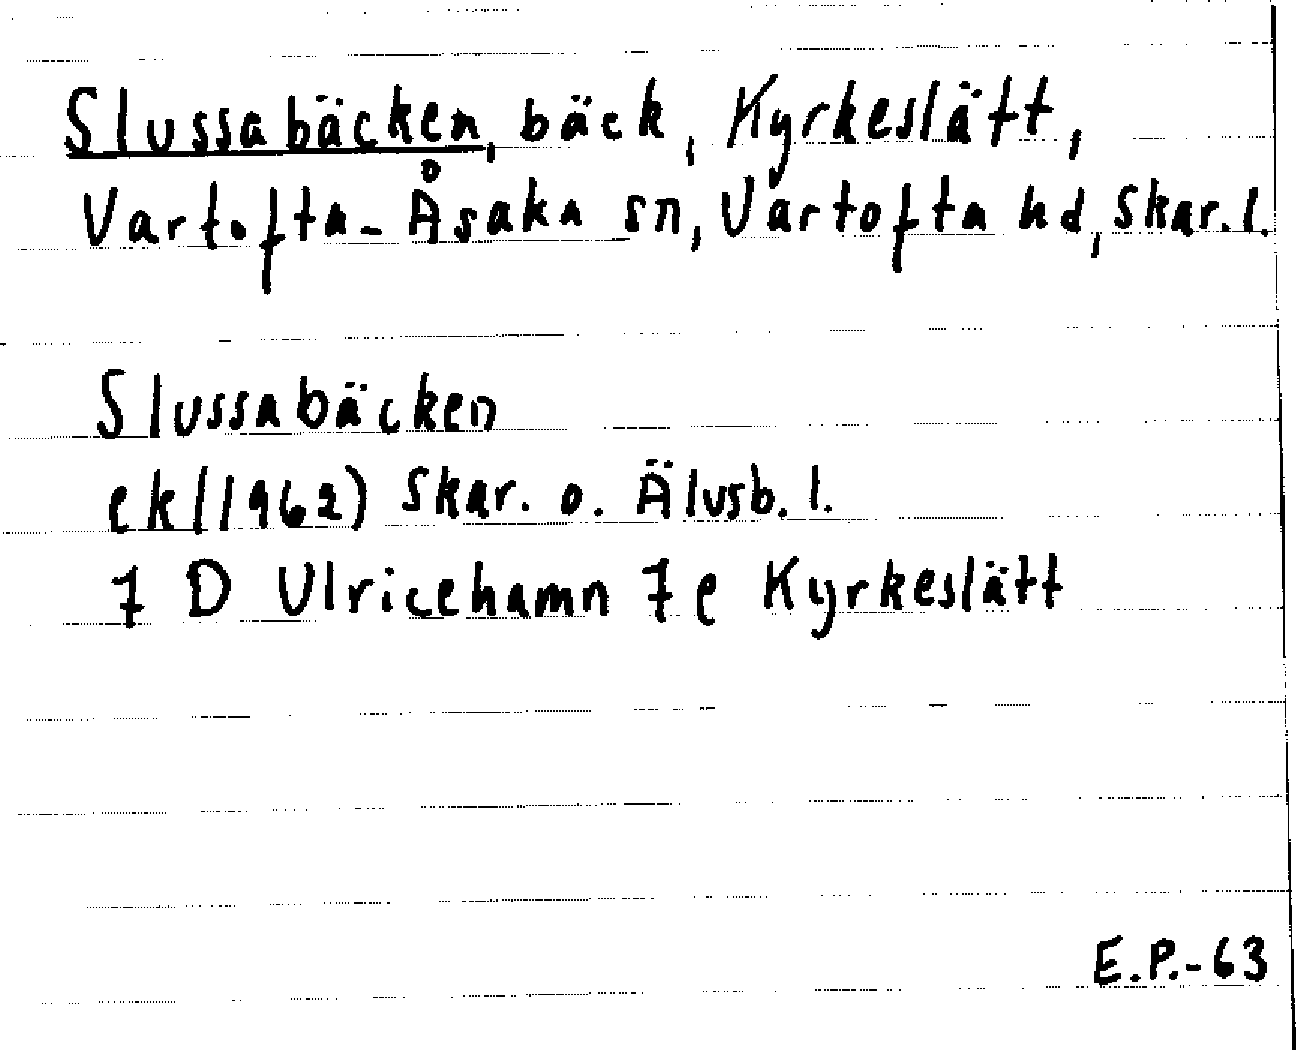 Slussabäcken, bäck, Kyrkeslätt,
Vartofta-Åsaka sn, Vartofta hd, Skar. l.
Slussabäcken
ek (1962) Skar. o. Älvsb. l.
7 D Ulricehamn 7 e Kyrkeslätt
E.P.-63